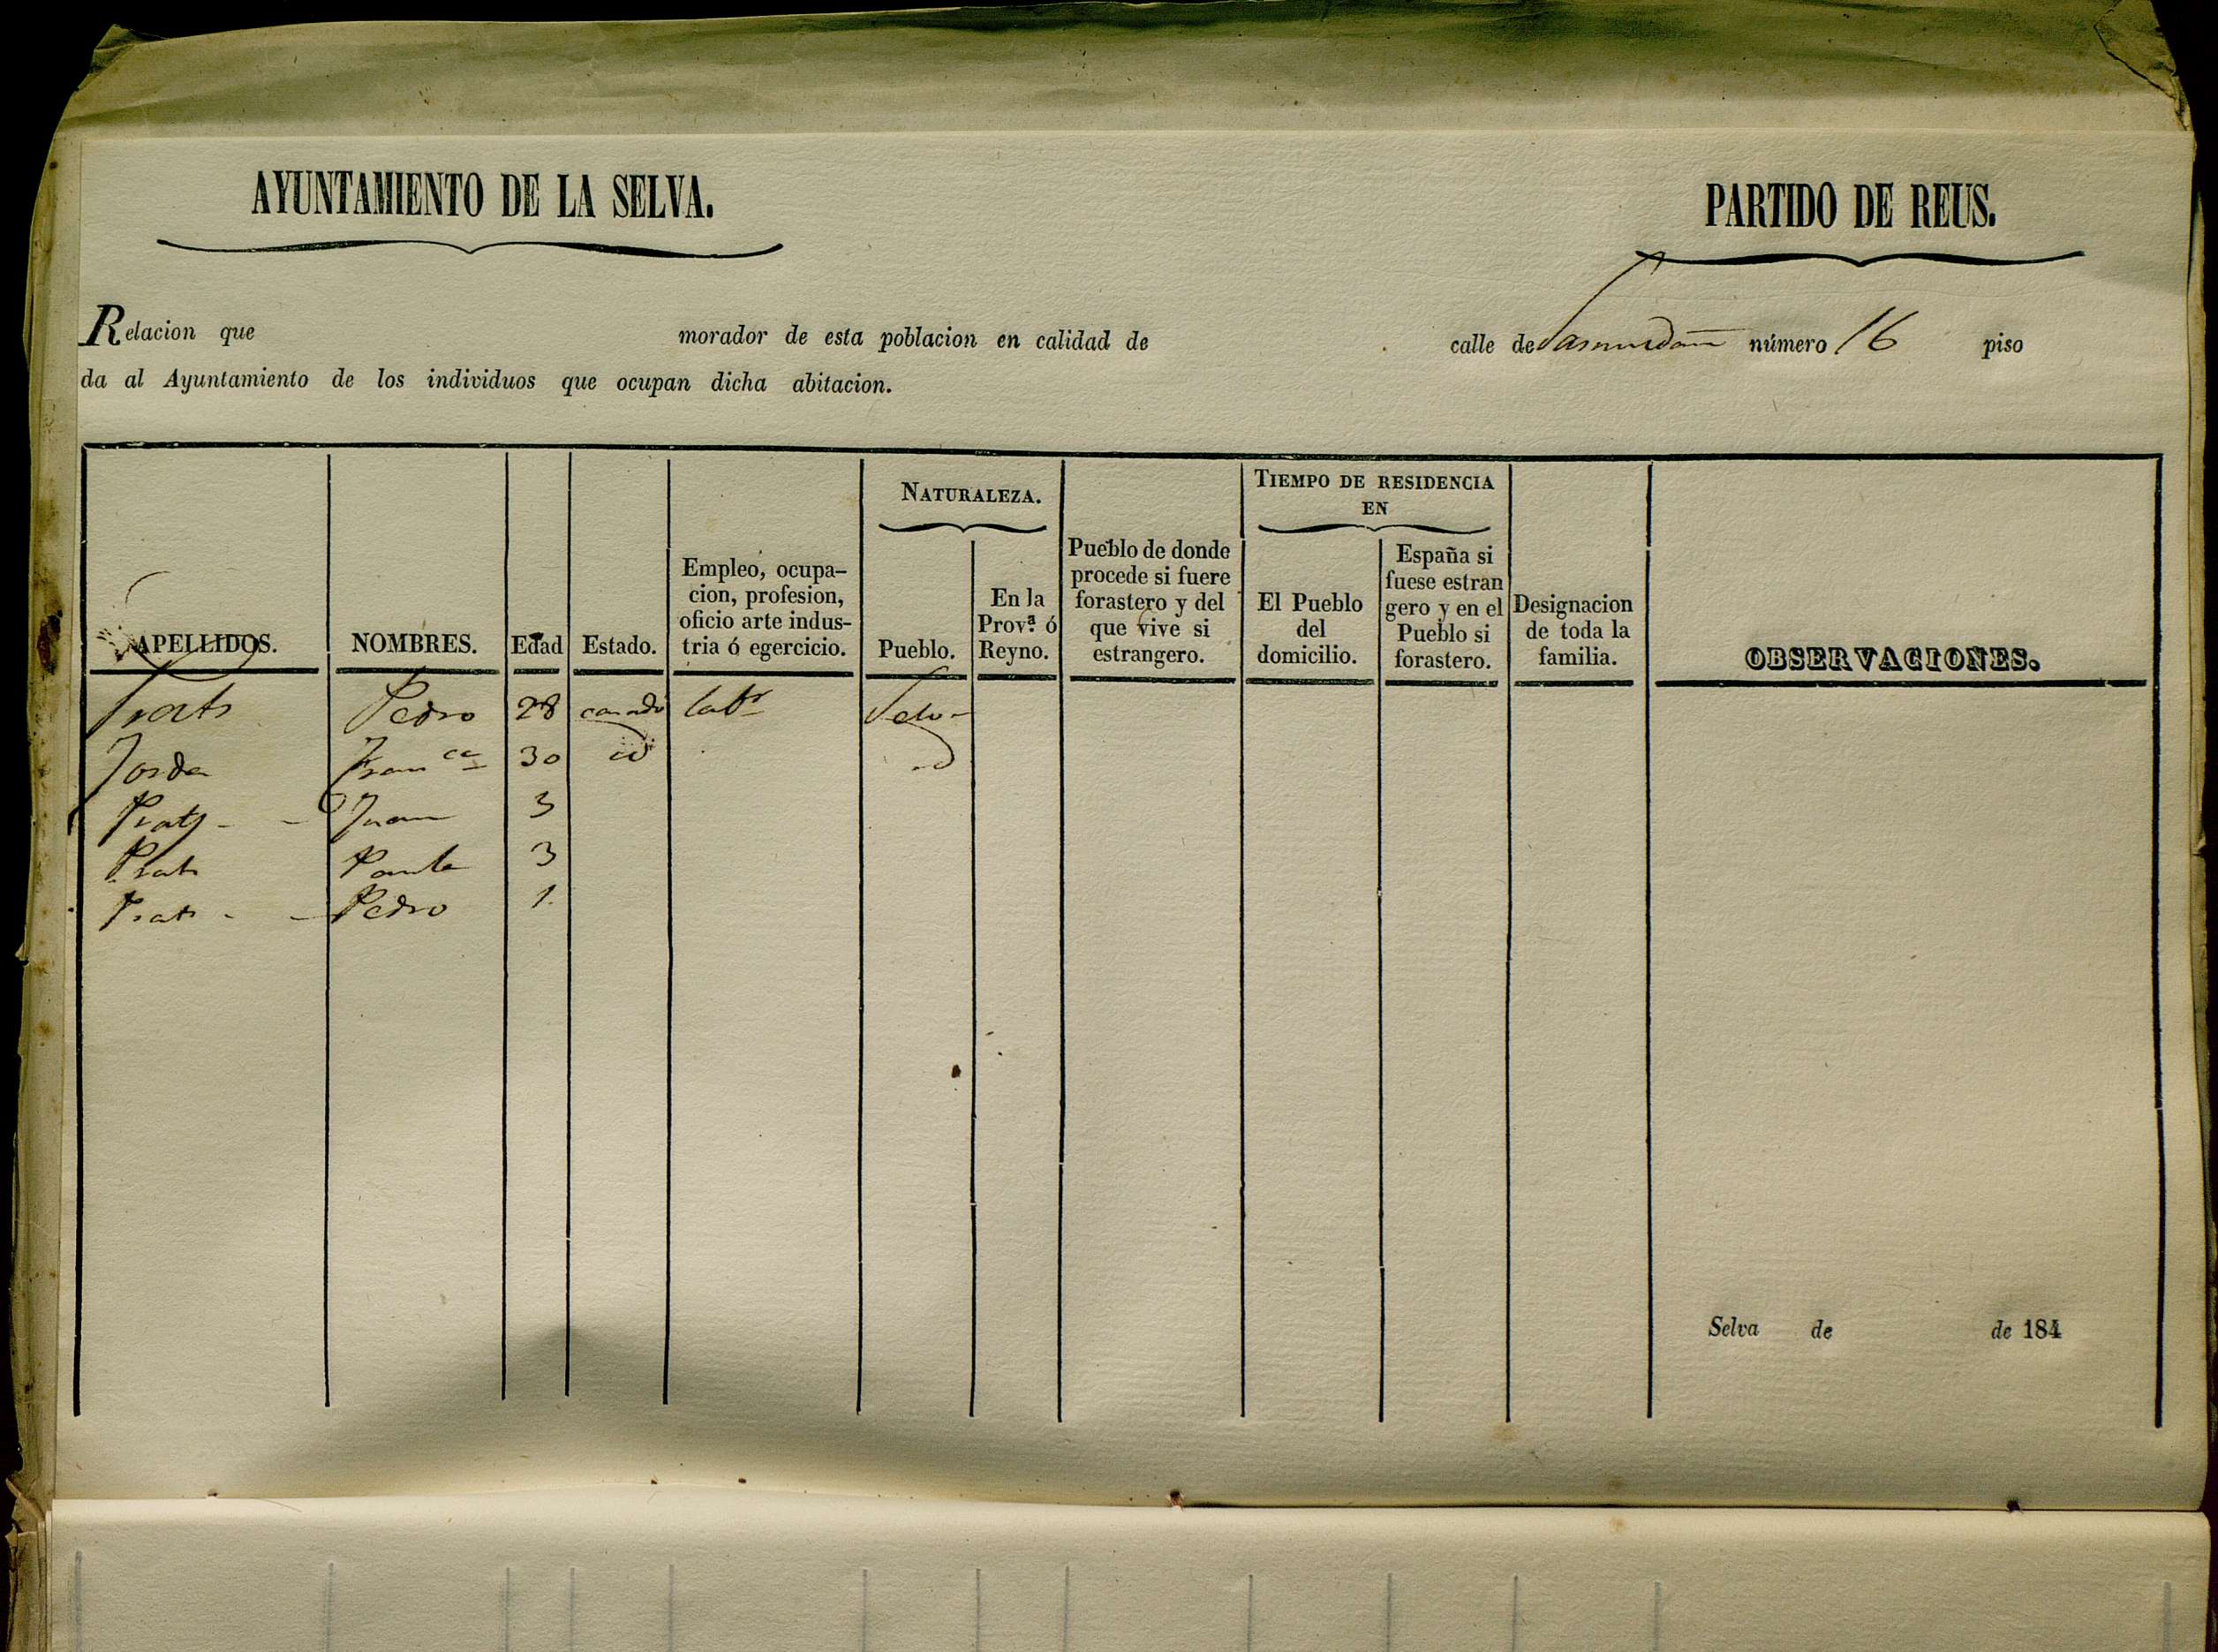 AYUNTAMIENTO DE LA SELVA.
PARTIDO DE REUS.
Relacion que morador de esta poblacion en calidad de calle de número 16 piso
da al Ayuntamiento de los individuos que ocupan dicha abitacion.
NATURALEZA.
TIEMPO DE RESIDENCIA
EN
APELLIDOS.
NOMBRES.
Edad
Estado.
Empleo, ocupa-
cion, profesion,
oficio arte indus-
tria ó egercicio.
Pueblo.
En la
Prov.ª ó
Reyno.
Pueblo de donde
procede si fuere
forastero y del
que vive si
estrangero.
El Pueblo
del
domicilio.
España si
fuese estran
gero y en el
Pueblo si
forastero.
Designacion
de toda la
familia.
OBSERVACIONES.
Prats Pedro 28 casado labr Selva
Jorda Franca 30 id id
Prats - - Juan 3
Prats Paula 3
Prats - - Pedro 1.
Selva de de 184